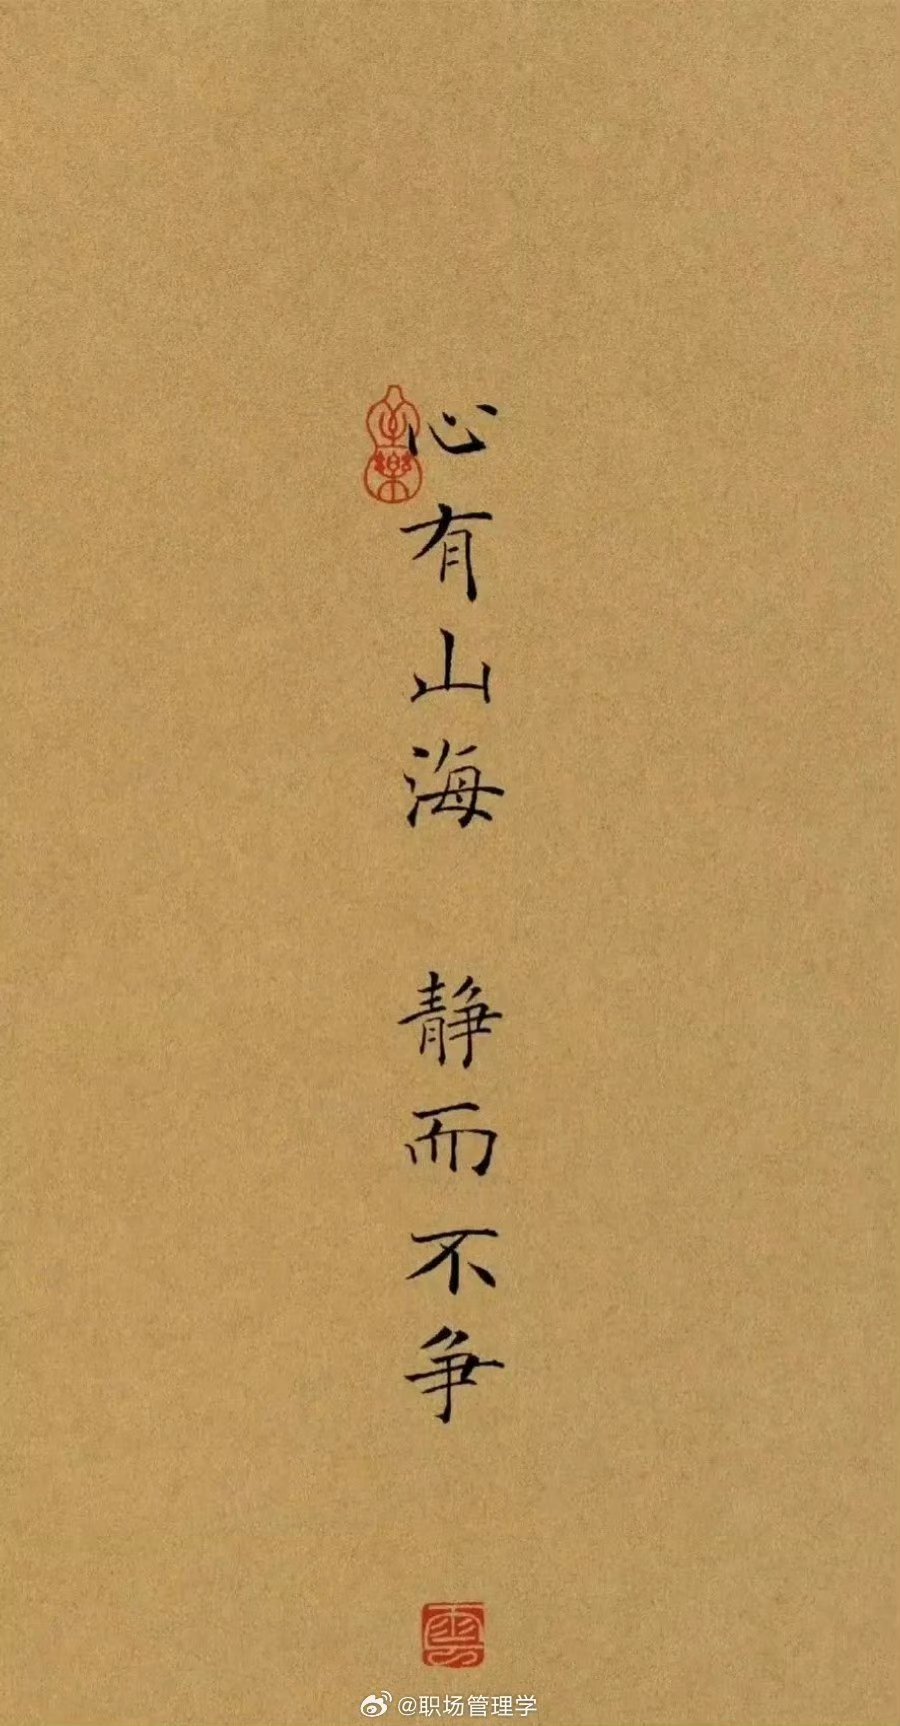 心有山海 静而不争
@职场管理学